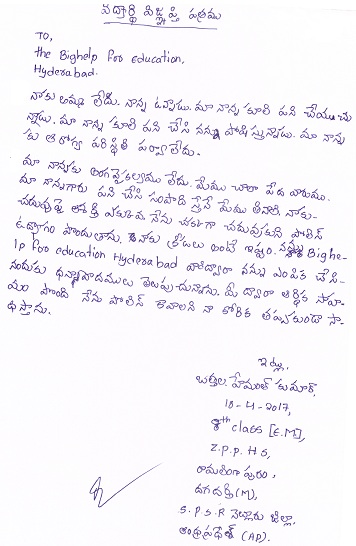 విద్యార్థి విజ్ఞప్తి పత్రము
To,
the Bighelp for education,
Hyderabad.
నాకు అమ్మ లేదు. నాన్న ఉన్నాడు. మా నాన్న కూలి పని చేయుచు
న్నాడు. మా నాన్న కూలి పని చేసి నన్ను పోషిస్తున్నాడు. మా నాన్న
కు ఆరోగ్య పరిస్థితి పర్వాలేదు.
మా నాన్నకు అంగవైకల్యము లేదు. మేము చాలా పేద వారము.
మా నాన్నగారు పని చేసి సంపాదిస్తేనే మేము తినాలి నాకు-
చదువుపై ఆసక్తి ఎక్కువ నేను చక్కగా చదువుకుని పోలిస్
ఉద్యోగం పొందుతాను. నాకు క్రీడలు అంటే ఇష్టం. నన్ను Bighe-
lp for education Hyderabad వారిద్వారా నన్ను ఎంపిక చేసి-
నందుకు ధన్యావాదములు తెలుపుచున్నాను. మీ ద్వారా ఆర్థిక సాహ-
యం పొంది నేను పోలిస్ కావాలని నా కోరిక తప్పకుండా సా-
ధిస్తాను.
ఇట్లు,
బత్తల. హేమంత్ కుమార్,
10-4-2017,
8th class [E.M],
Z.P.P.H.S,
రామలింగా పురం,
దగదర్తి(M),
S.P.S.R నెల్లూరు జిల్లా,
ఆంధ్రప్రదేశ్ (AP).